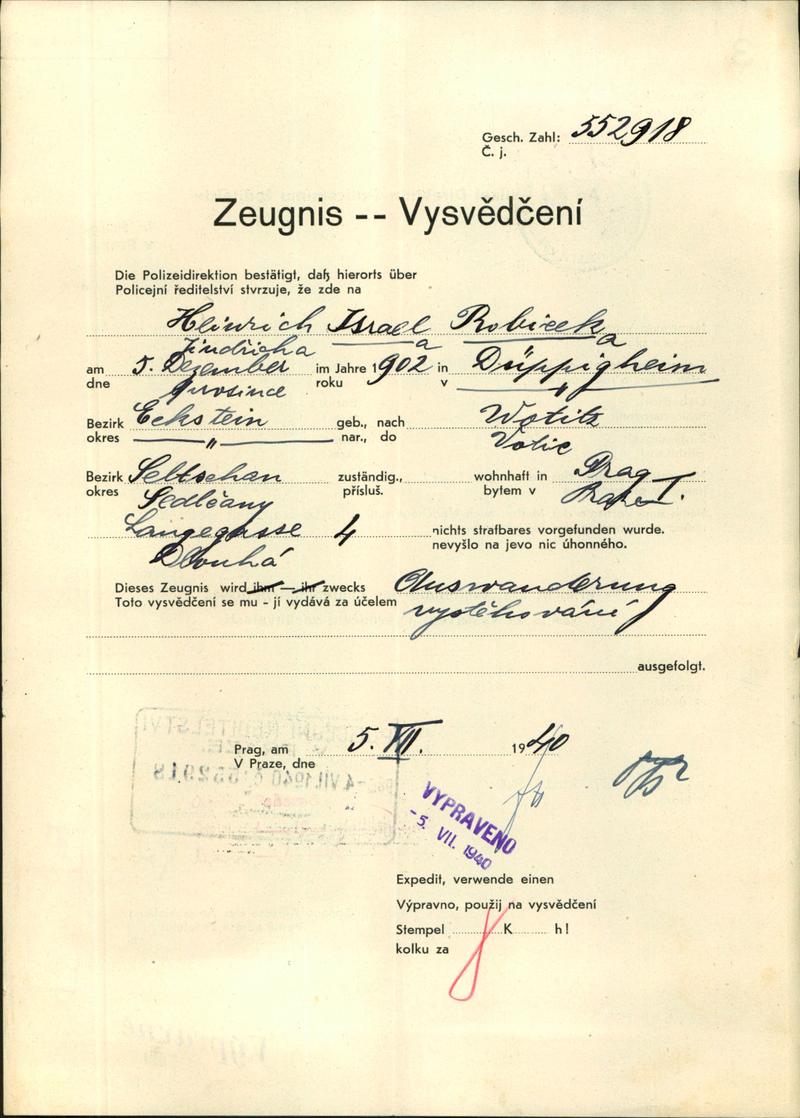 Gesch. Zahl: 552918
Č. j.
Zeugnis -- Vysvědčení
Die Polizeidirektion bestätigt, daß hierorts über
Policejní ředitelství stvrzuje, že zde na
Heinrich Israel Robicek
Jindřicha a a
am 5. Dezember im Jahre 1902 in Düppigheim
dne prosince roku v "
Bezirk Eckstein geb., nach Wotitz
okres " nar., do Votic
Bezirk Seltschan zuständig., wohnhaft in Prag
okres Sedlčany přísluš. bytem v Praze I.
Langegasse 4 nichts strafbares vorgefunden wurde.
Dlouhá nevyšlo na jevo nic úhonného.
Dieses Zeugnis wird ihm — ihr zwecks Auswanderung
Toto vysvědčení se mu - jí vydává za účelem vystěhování
ausgefolgt.
Prag, am 5. VII. 1940
V Praze, dne
VYPRAVENO
-5. VII. 1940
Expedit, verwende einen
Výpravno, použij na vysvědčení
Stempel K h!
kolku za